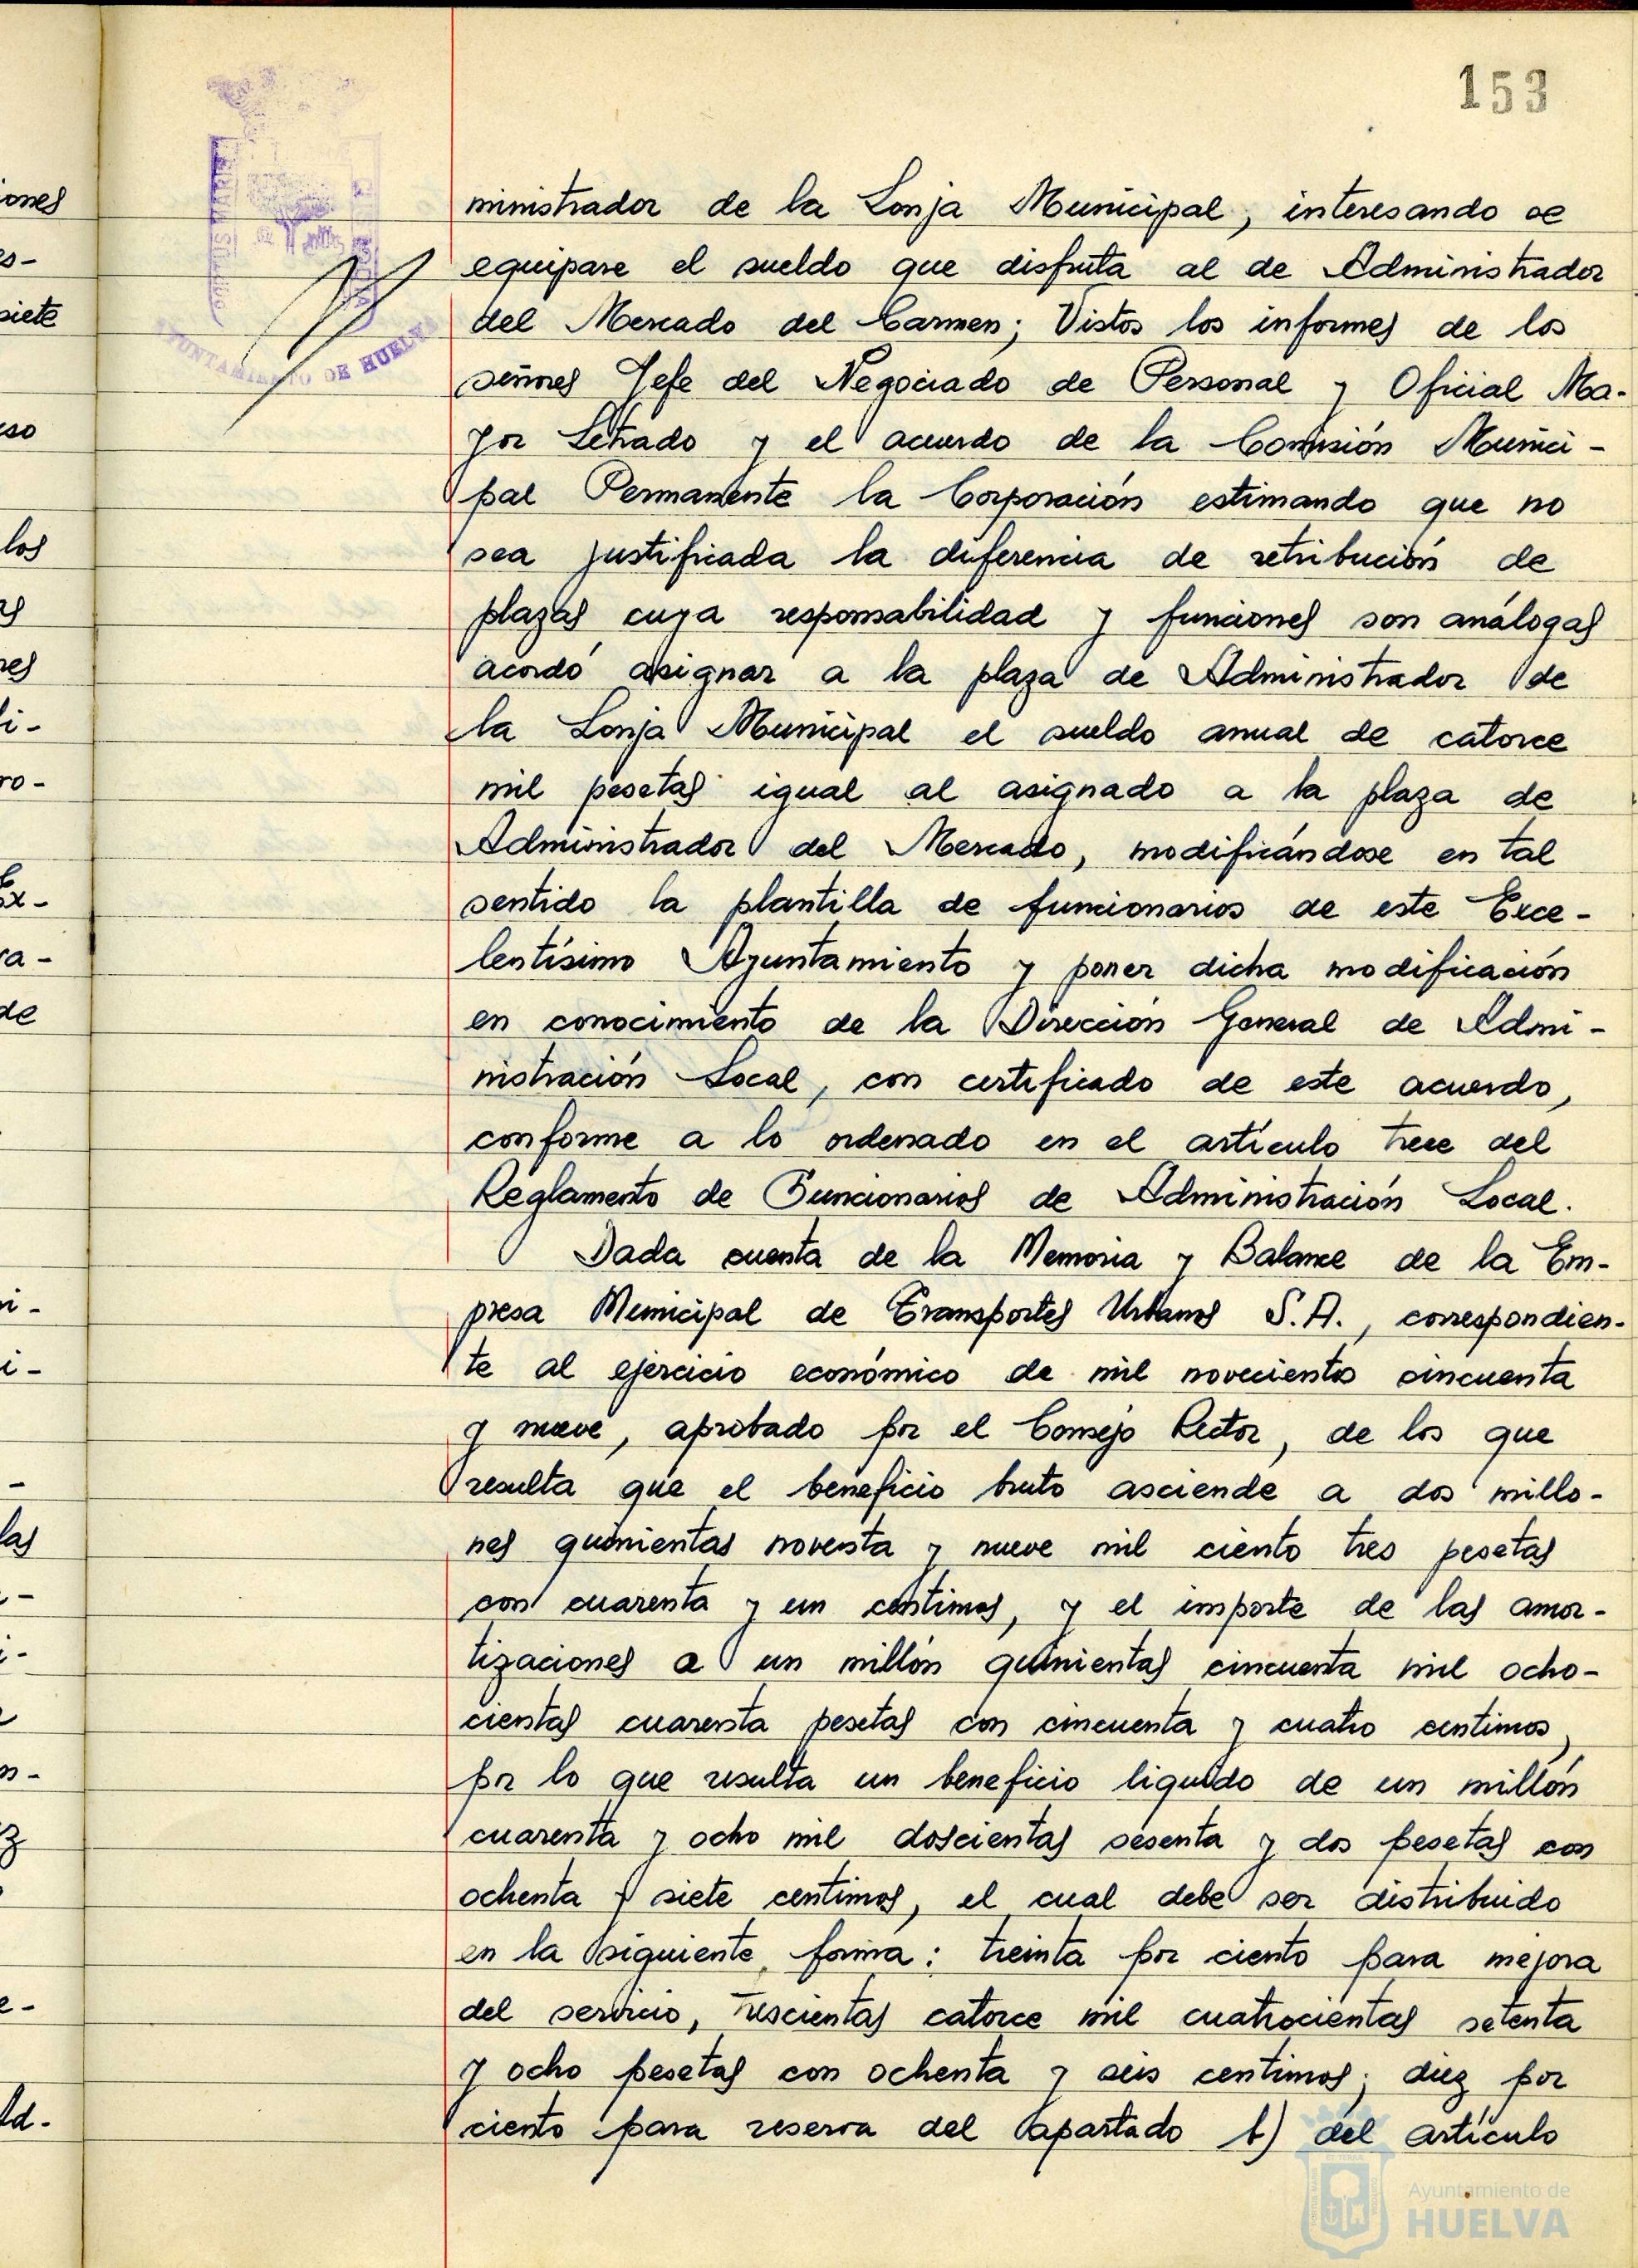 153
PORTUS MARIS
AYUNTAMIENTO DE HUELVA
ministrador de la Lonja Municipal, interesando se
equipare el sueldo que disfruta al de Administrador
del Mercado del Carmen; Vistos los informes de los
señores Jefe del Negociado de Personal y Oficial Ma-
yor Letrado y el acuerdo de la Comisión Munici-
pal Permanente la Corporación estimando que no
sea justificada la diferencia de retribución de
plazas cuya responsabilidad y funciones son análogas
acordó asignar a la plaza de Administrador de
la Lonja Municipal el sueldo anual de catorce
mil pesetas igual al asignado a la plaza de
Administrador del Mercado, modificándose en tal
sentido la plantilla de funcionarios de este Exce-
lentísimo Ayuntamiento y poner dicha modificación
en conocimiento de la Dirección General de Admi-
nistración Local, con certificado de este acuerdo,
conforme a lo ordenado en el artículo trece del
Reglamento de Funcionarios de Administración Local.
Dada cuenta de la Memoria y Balance de la Em-
presa Municipal de Transportes Urbanos S.A., correspondien-
te al ejercicio económico de mil novecientos cincuenta
y nueve, aprobado por el Consejo Rector, de los que
resulta que el beneficio bruto asciende a dos millo-
nes quinientas noventa y nueve mil ciento tres pesetas
con cuarenta y un centimos, y el importe de las amor-
tizaciones a un millón quinientas cincuenta mil ocho-
cientas cuarenta pesetas con cincuenta y cuatro centimos,
por lo que resulta un beneficio liquido de un millón
cuarenta y ocho mil doscientas sesenta y dos pesetas con
ochenta y siete centimos, el cual debe ser distribuido
en la siguiente forma: treinta por ciento para mejora
del servicio, trescientas catorce mil cuatrocientas setenta
y ocho pesetas con ochenta y seis centimos; diez por
ciento para reserva del apartado b) del artículo
Ayuntamiento de
HUELVA